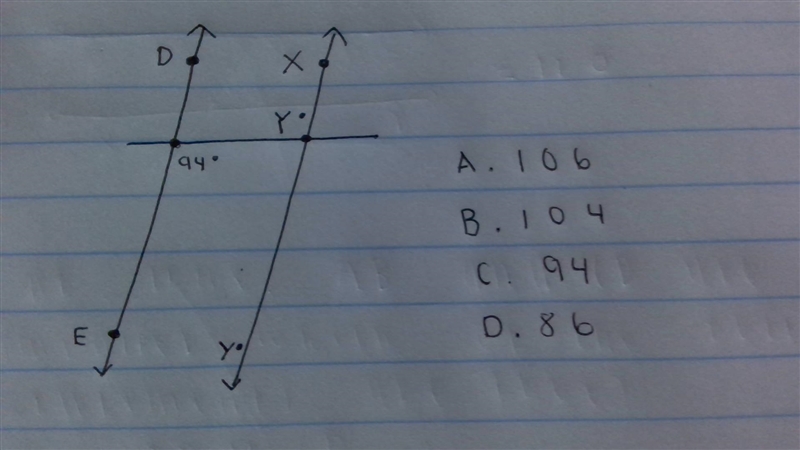 D X
Y°
94°
E Y
A. 106
B. 104
C. 94
D. 86